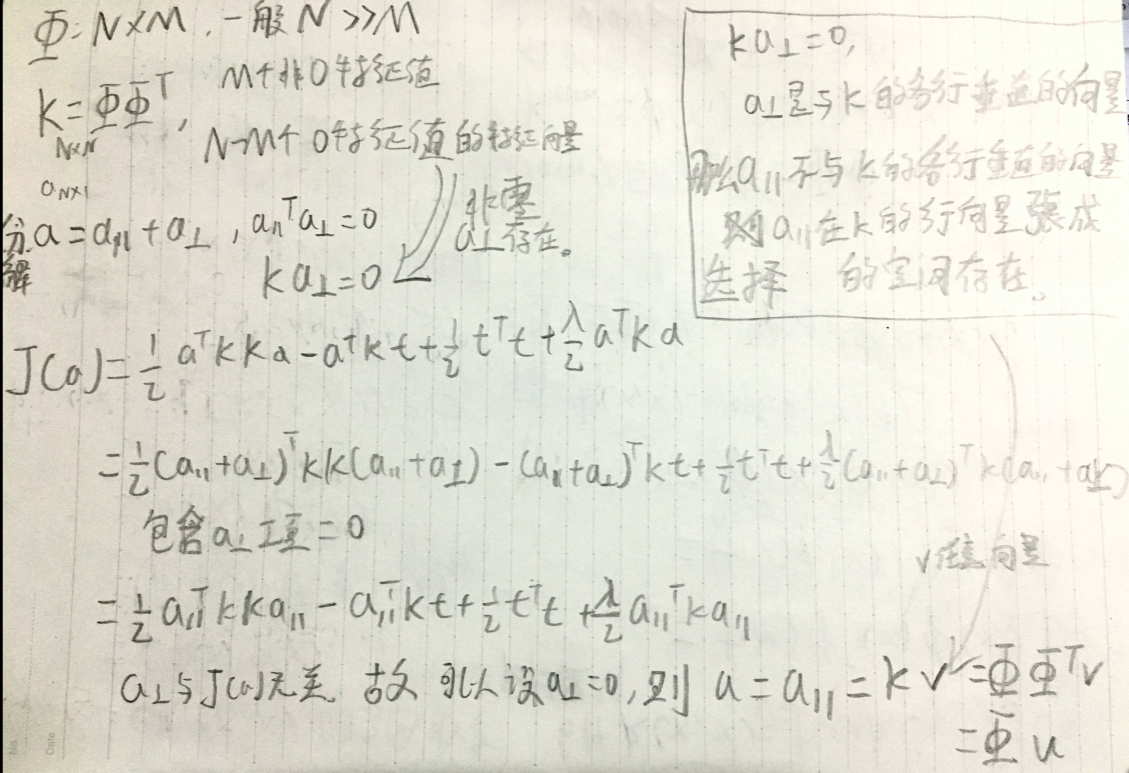 Φ: N×M, 一般 N>>M
K=ΦΦᵀ, M个非0特征值
N×N
N-M个 0特征值的特征向量
a N×1
分解 a=a∥+a⊥, a∥ᵀa⊥=0
非零a⊥存在。
Ka⊥=0
Ka⊥=0,
a⊥是与K的各行垂直的向量
那么a∥不与K的各行垂直的向量
则a∥在K的行向量张成
选择 的空间存在。
J(a)=½aᵀKKa-aᵀKt+½tᵀt+λ/2 aᵀKa
=½(a∥+a⊥)ᵀKK(a∥+a⊥)-(a∥+a⊥)ᵀKt+½tᵀt+λ/2(a∥+a⊥)ᵀK(a∥+a⊥)
包含a⊥项=0
v任意向量
=½a∥ᵀKKa∥-a∥ᵀKt+½tᵀt+λ/2 a∥ᵀKa∥
a⊥与J(a)无关, 故可以设a⊥=0, 则 a=a∥=Kv=ΦΦᵀv
=Φu
No.
Date